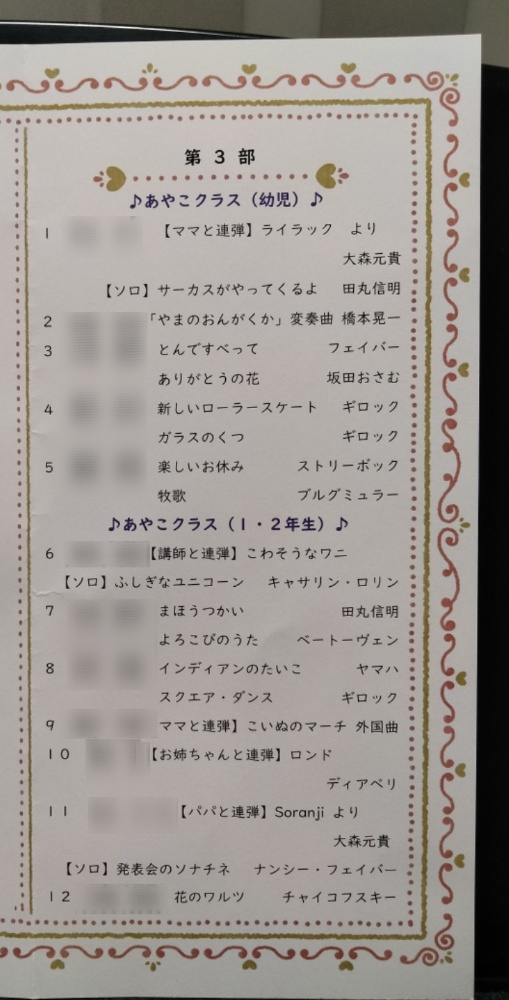 第3部
♪あやこクラス（幼児）♪
1 【ママと連弾】ライラック より
大森元貴
【ソロ】サーカスがやってくるよ 田丸信明
2 「やまのおんがくか」変奏曲 橋本晃一
3 とんですべって フェイバー
ありがとうの花 坂田おさむ
4 新しいローラースケート ギロック
ガラスのくつ ギロック
5 楽しいお休み ストリーボック
牧歌 ブルグミュラー
♪あやこクラス（1・2年生）♪
6 【講師と連弾】こわそうなワニ
【ソロ】ふしぎなユニコーン キャサリン・ロリン
7 まほうつかい 田丸信明
よろこびのうた ベートーヴェン
8 インディアンのたいこ ヤマハ
スクエア・ダンス ギロック
9 ママと連弾】こいぬのマーチ 外国曲
10 【お姉ちゃんと連弾】ロンド
ディアベリ
11 【パパと連弾】Soranji より
大森元貴
【ソロ】発表会のソナチネ ナンシー・フェイバー
12 花のワルツ チャイコフスキー